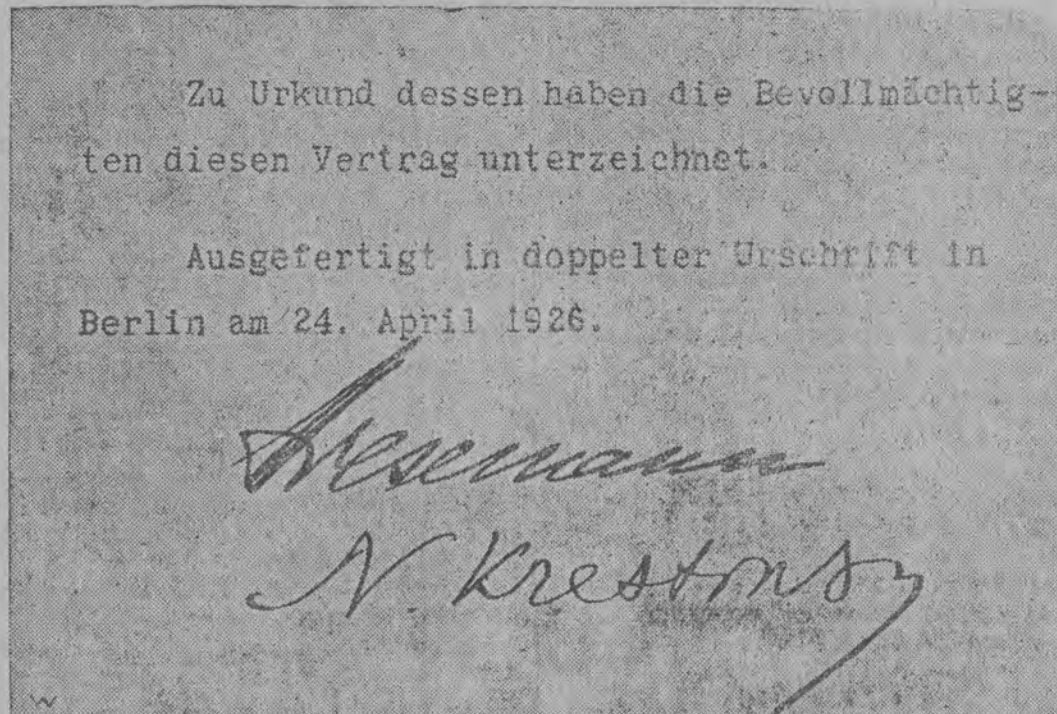 Zu Urkund dessen haben die Bevollmächtig-
ten diesen Vertrag unterzeichnet.
Ausgefertigt in doppelter Urschrift in
Berlin am 24. April 1926.
Stresemann
N. Krestinsky